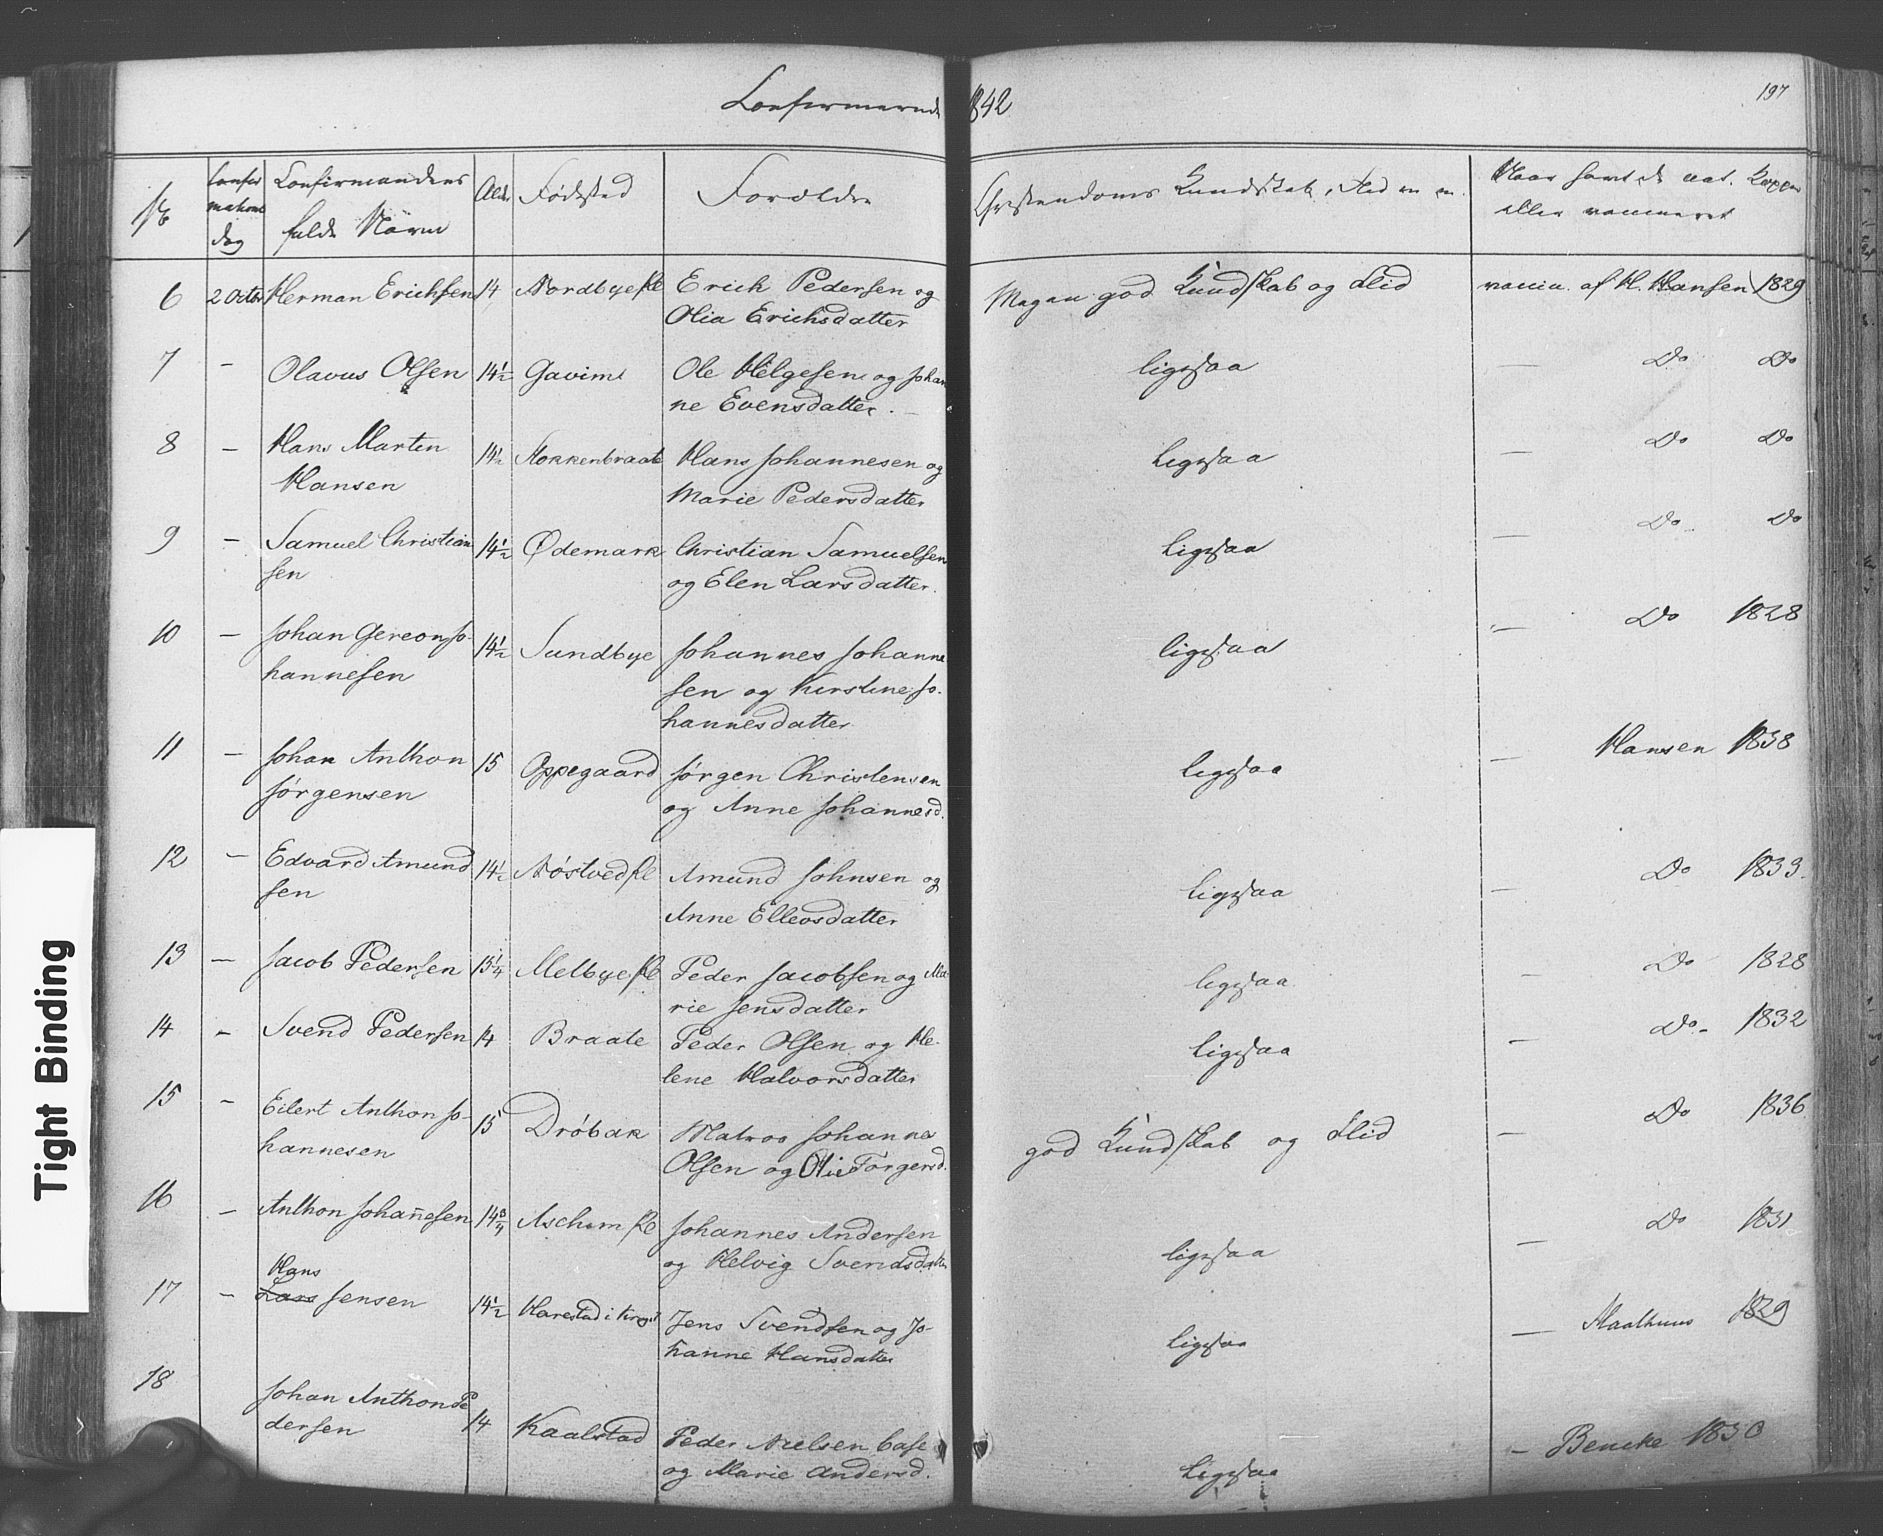 Confirmerede 1842
197
№
Confir
mations
dag
Confirmandens
fulde Navn
Alder
Fødested
Forældre
Christendoms Kundskab, Flid m. m.
Naar samt de nat. Kopper
eller vaccineret
6 2 Octbr Herman Erichsen 14 Nordbye Erick Pedersen og
Olia Erichsdatter
Megen god Kundskab og Flid
vaccin. af H. Hansen 1829
7 — Olavus Olsen 14½ Gavim Ole Helgesen og Johan
ne Evensdatter.
ligesaa
— Do Do
8 — Hans Marten
Hansen
14½ Stokkenbraate Hans Johannesen og
Marie Pedersdatter
ligesaa
— Do Do
9 — Samuel Christian
sen
14½ Ødemark Christian Samuelsen
og Elen Larsdatter.
ligesaa
— Do Do
10 — Johan Gereon Jo-
hannesen
14½ Sundbye Johannes Johanne
sen og Kirstine Jo-
hannesdatter
ligesaa
— Do 1828
11 — Johan Anthon
Jørgensen
15 Oppegaard Jørgen Christensen
og Anne Johannesd.
ligesaa
— Hansen 1838
12 — Edvard Amund
sen
14½ Nøstved Amund Johnsen og
Anne Ellevsdatter
ligesaa
— Do 1833.
13 — Jacob Pedersen 15¼ Melbye Peder Jacobsen og Ma-
rie Jensdatter
ligesaa
— Do 1828
14 — Svend Pedersen 14 Braate Peder Olsen og He-
lene Halvorsdatter
ligesaa
— Do 1832
15 — Eilert Anthon Jo-
hannesen
15 Drøbak Matros Johannes
Olsen og Olie Torgersd.
god Kundskab og Flid
— Do 1836
16 — Anthon Johan̄esen 14¾ Aschim Johannes Andersen
og Helvig Svendsdatter
ligesaa
— Do 1831
Hans
17 — Lars Jensen 14½ Harestad i Jens Svendsen og Jo-
hanne Hansdatter
ligesaa
— 1829
18 Johan Anthon Pe
dersen
14 Kaalstad Peder Nielsen
og Marie Andersd.
ligesaa
— Bencke 1830
Tight Binding